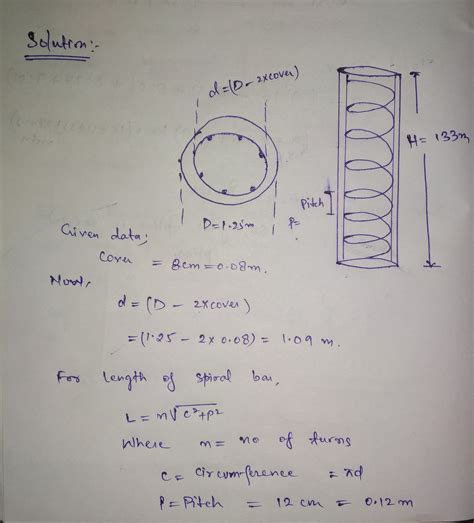 Solution:-
d=(D-2xcover)
H= 133m
Pitch
P=
D=1.25m
Given data;
Cover = 8cm=0.08m.
Now,
d = (D - 2xcover)
=(1.25 - 2x0.08) = 1.09 m.
For length of spiral bar,
L = n√c²+p²
Where n= no of turns
C= Circumference = πd
P= Pitch = 12 cm = 0.12m